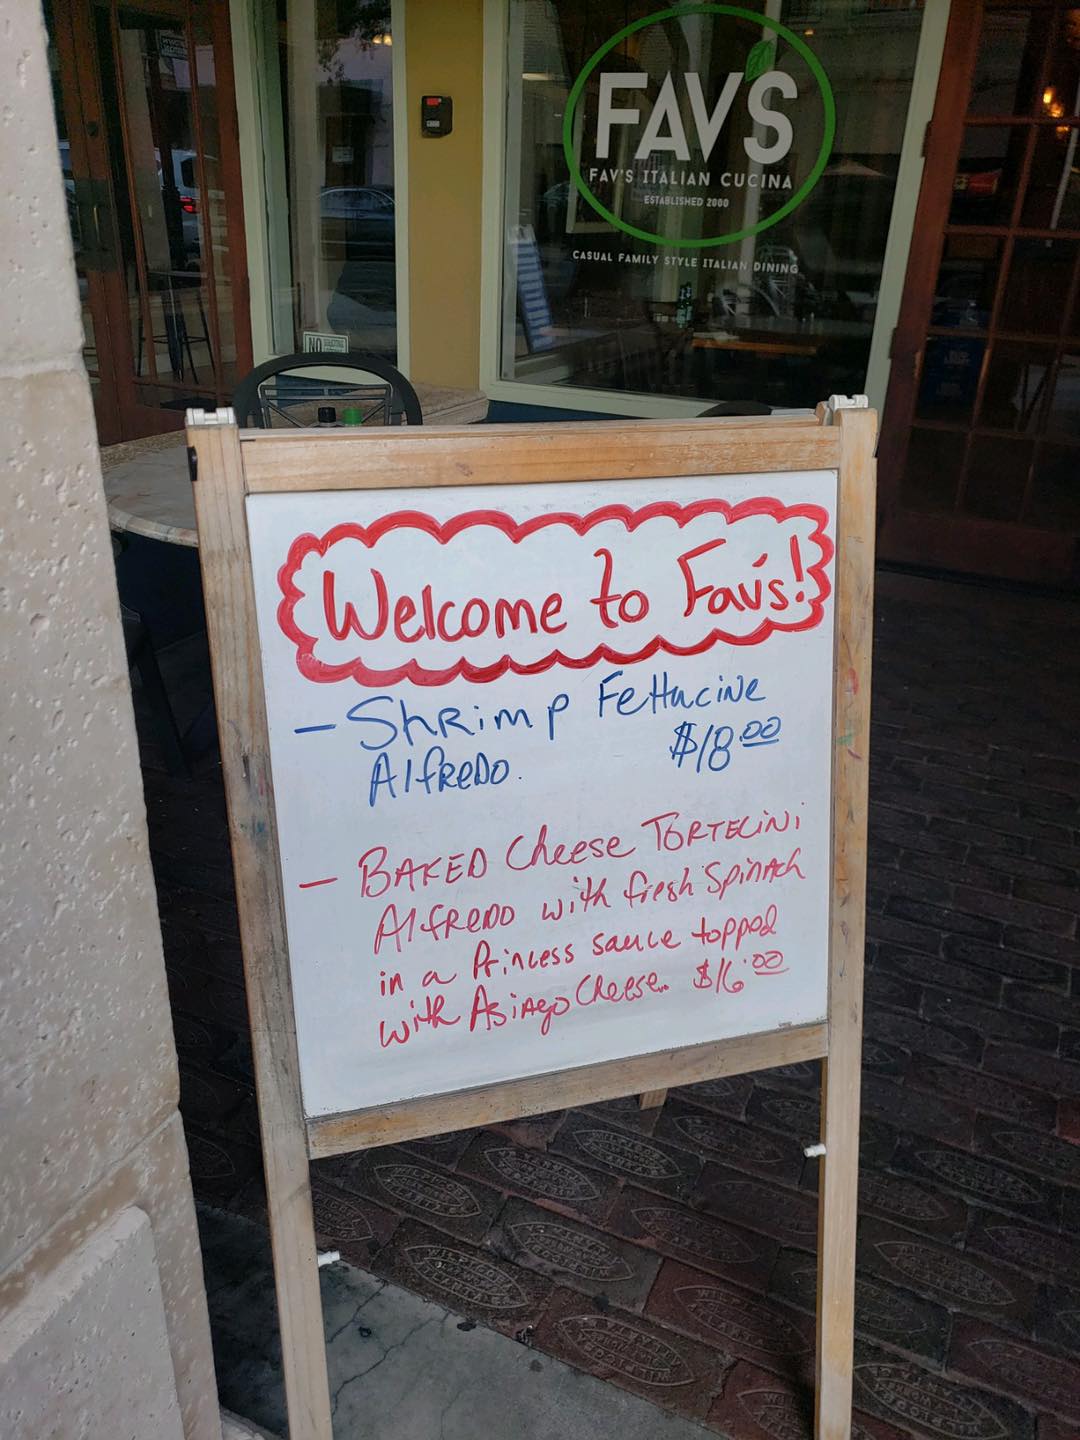 FAV'S
FAV'S ITALIAN CUCINA
ESTABLISHED 2000
CASUAL FAMILY STYLE ITALIAN DINING
NO
Welcome to Fav's!
- Shrimp Fettucine
Alfredo. $18.00
- BAKED Cheese TORTELINI
Alfredo with fresh Spinach
in a Princess sauce topped
with Asiago Cheese. $16.00